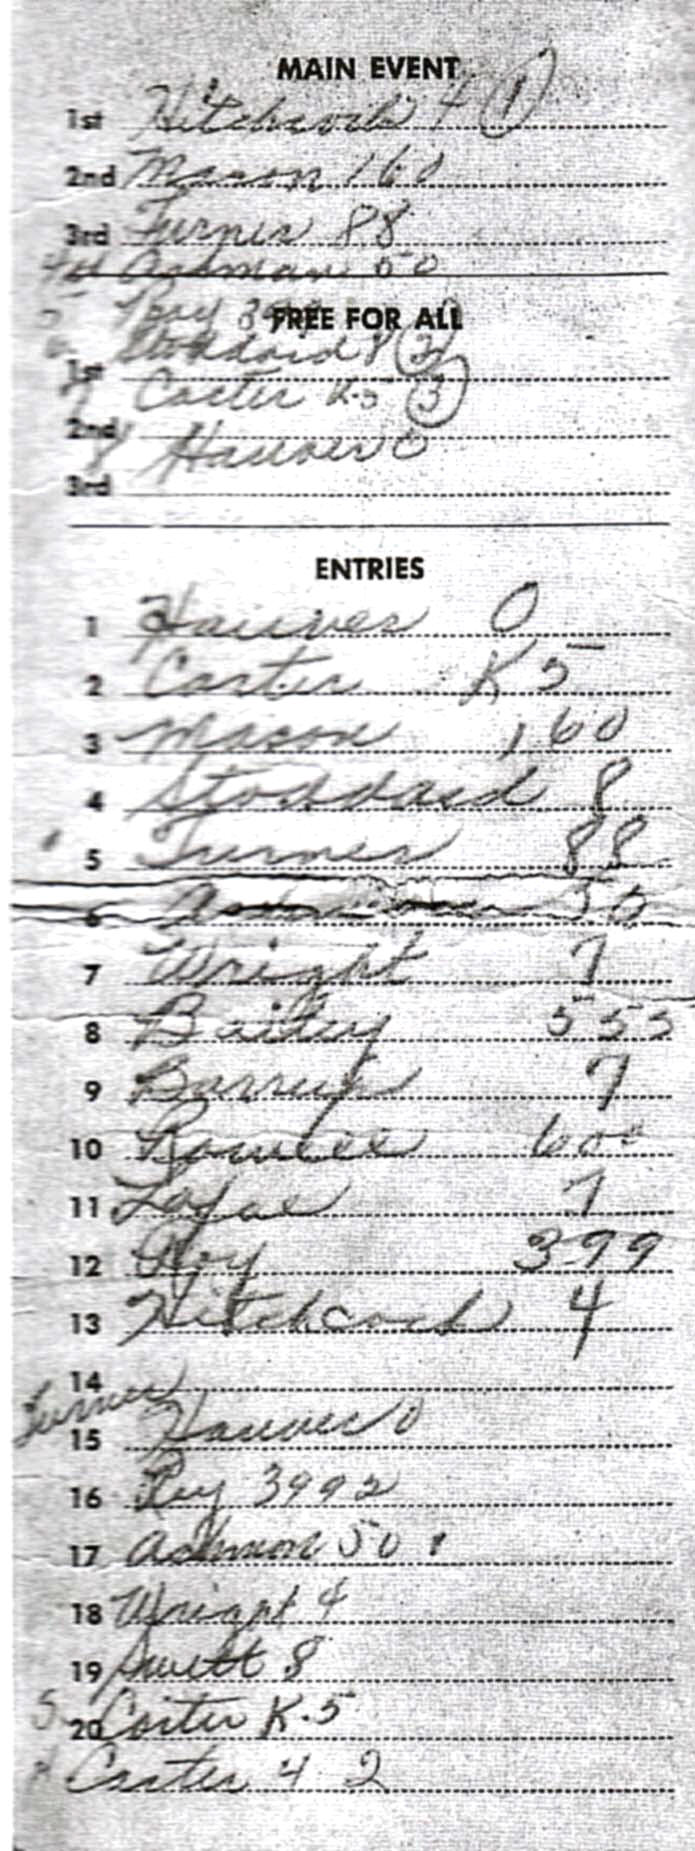 MAIN EVENT
1st Hitchcock 4 (1)
2nd Mason 160
3rd Turner 88
4th Ashman 50
5 Roy 399
FREE FOR ALL
6 Stoddard 8 (2)
1st
7 Carter K-5 (3)
2nd
8 Hanver 0
3rd
ENTRIES
1 Hanver 0
2 Carter K 5
3 Mason 160
4 Stoddard 8
5 Turner 88
6 50
7 Wright 7
8 Bailey 555
9 7
10 600
11 7
12 Roy 399
13 Hitchcock 4
14
Turner
15 Hanver 0
16 Roy 399 2
17 Ashman 50
18 Wright 4
19 Swett 8
20 Carter K-5
Carter 4 2